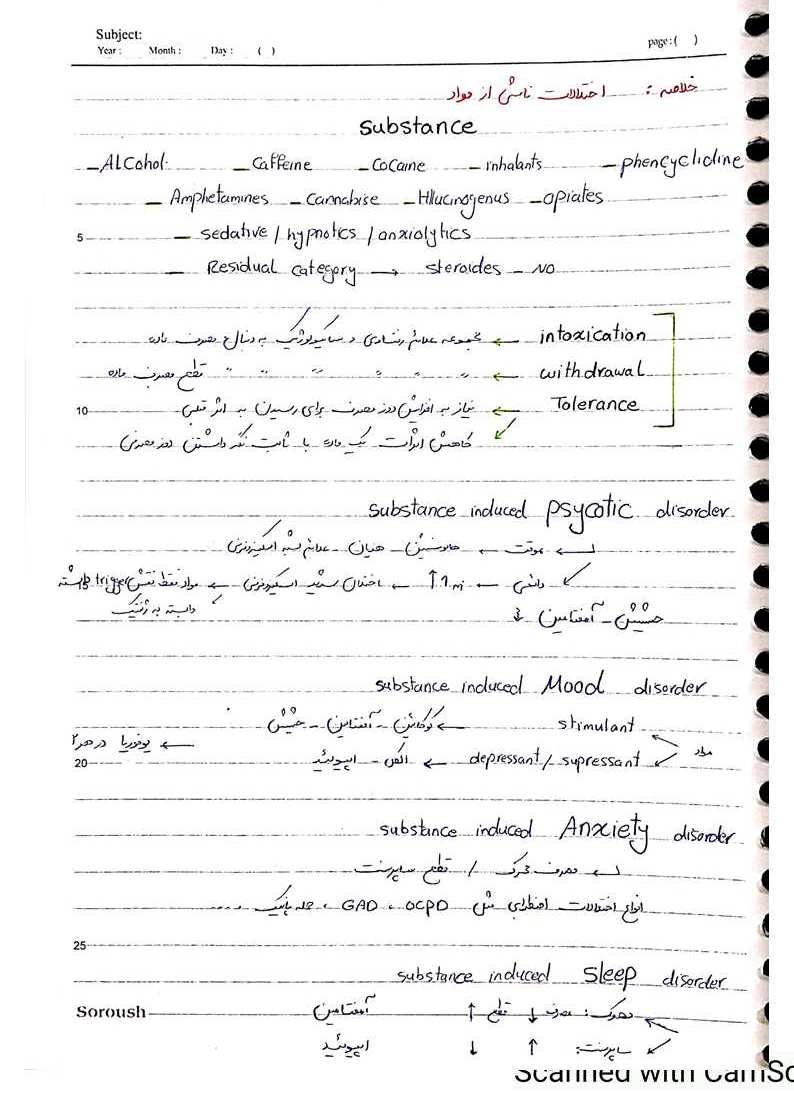 Subject:
Year : Month : Day : ( ) page : ( )
خلاصه : اختلالات ناشی از مواد
Substance
– ALCohol – Caffeine – Cocaine – inhalants – phencyclidine
– Amphetamines – Cannabise – Hllucinogenus – opiates
5 – sedative / hypnotics / anxiolytics
– Residual category → steroides – NO
intoxication ← مجموعه علائم رفتاری و سایکولوژیک به دنبال مصرف ماده
withdrawal ← " " " " " قطع مصرف ماده
10 Tolerance ← نیاز به افزایش دوز مصرف برای رسیدن به اثر قبلی
↙ کاهش اثرات یک ماده با ثابت نگه داشتن دوز مصرفی
substance induced psycotic disorder
موقت ← هالوسینیشن – هذیان – علائم شبه اسکیزوفرنی
دائمی ← ↑ ← اختلال اسکیزوفرنی ← مواد فقط نقش trigger داشته
وابسته به ژنتیک
حشیش – آمفتامین
substance induced Mood disorder
stimulant ← کوکائین – آمفتامین – حشیش
مواد
← یوفوریا در هر ۲
20 depressant / supressant ← الکل – اپیوئید
substance induced Anxiety disorder
مصرف محرک / قطع ساپرسنت
انواع اختلالات اضطرابی مثل GAD ، OCPD ، حمله پانیک ....
25
substance induced Sleep disorder
Soroush محرک : مصرف ↓ قطع ↑ آمفتامین
ساپرسنت : ↑ ↓ اپیوئید
Scanned with CamSc